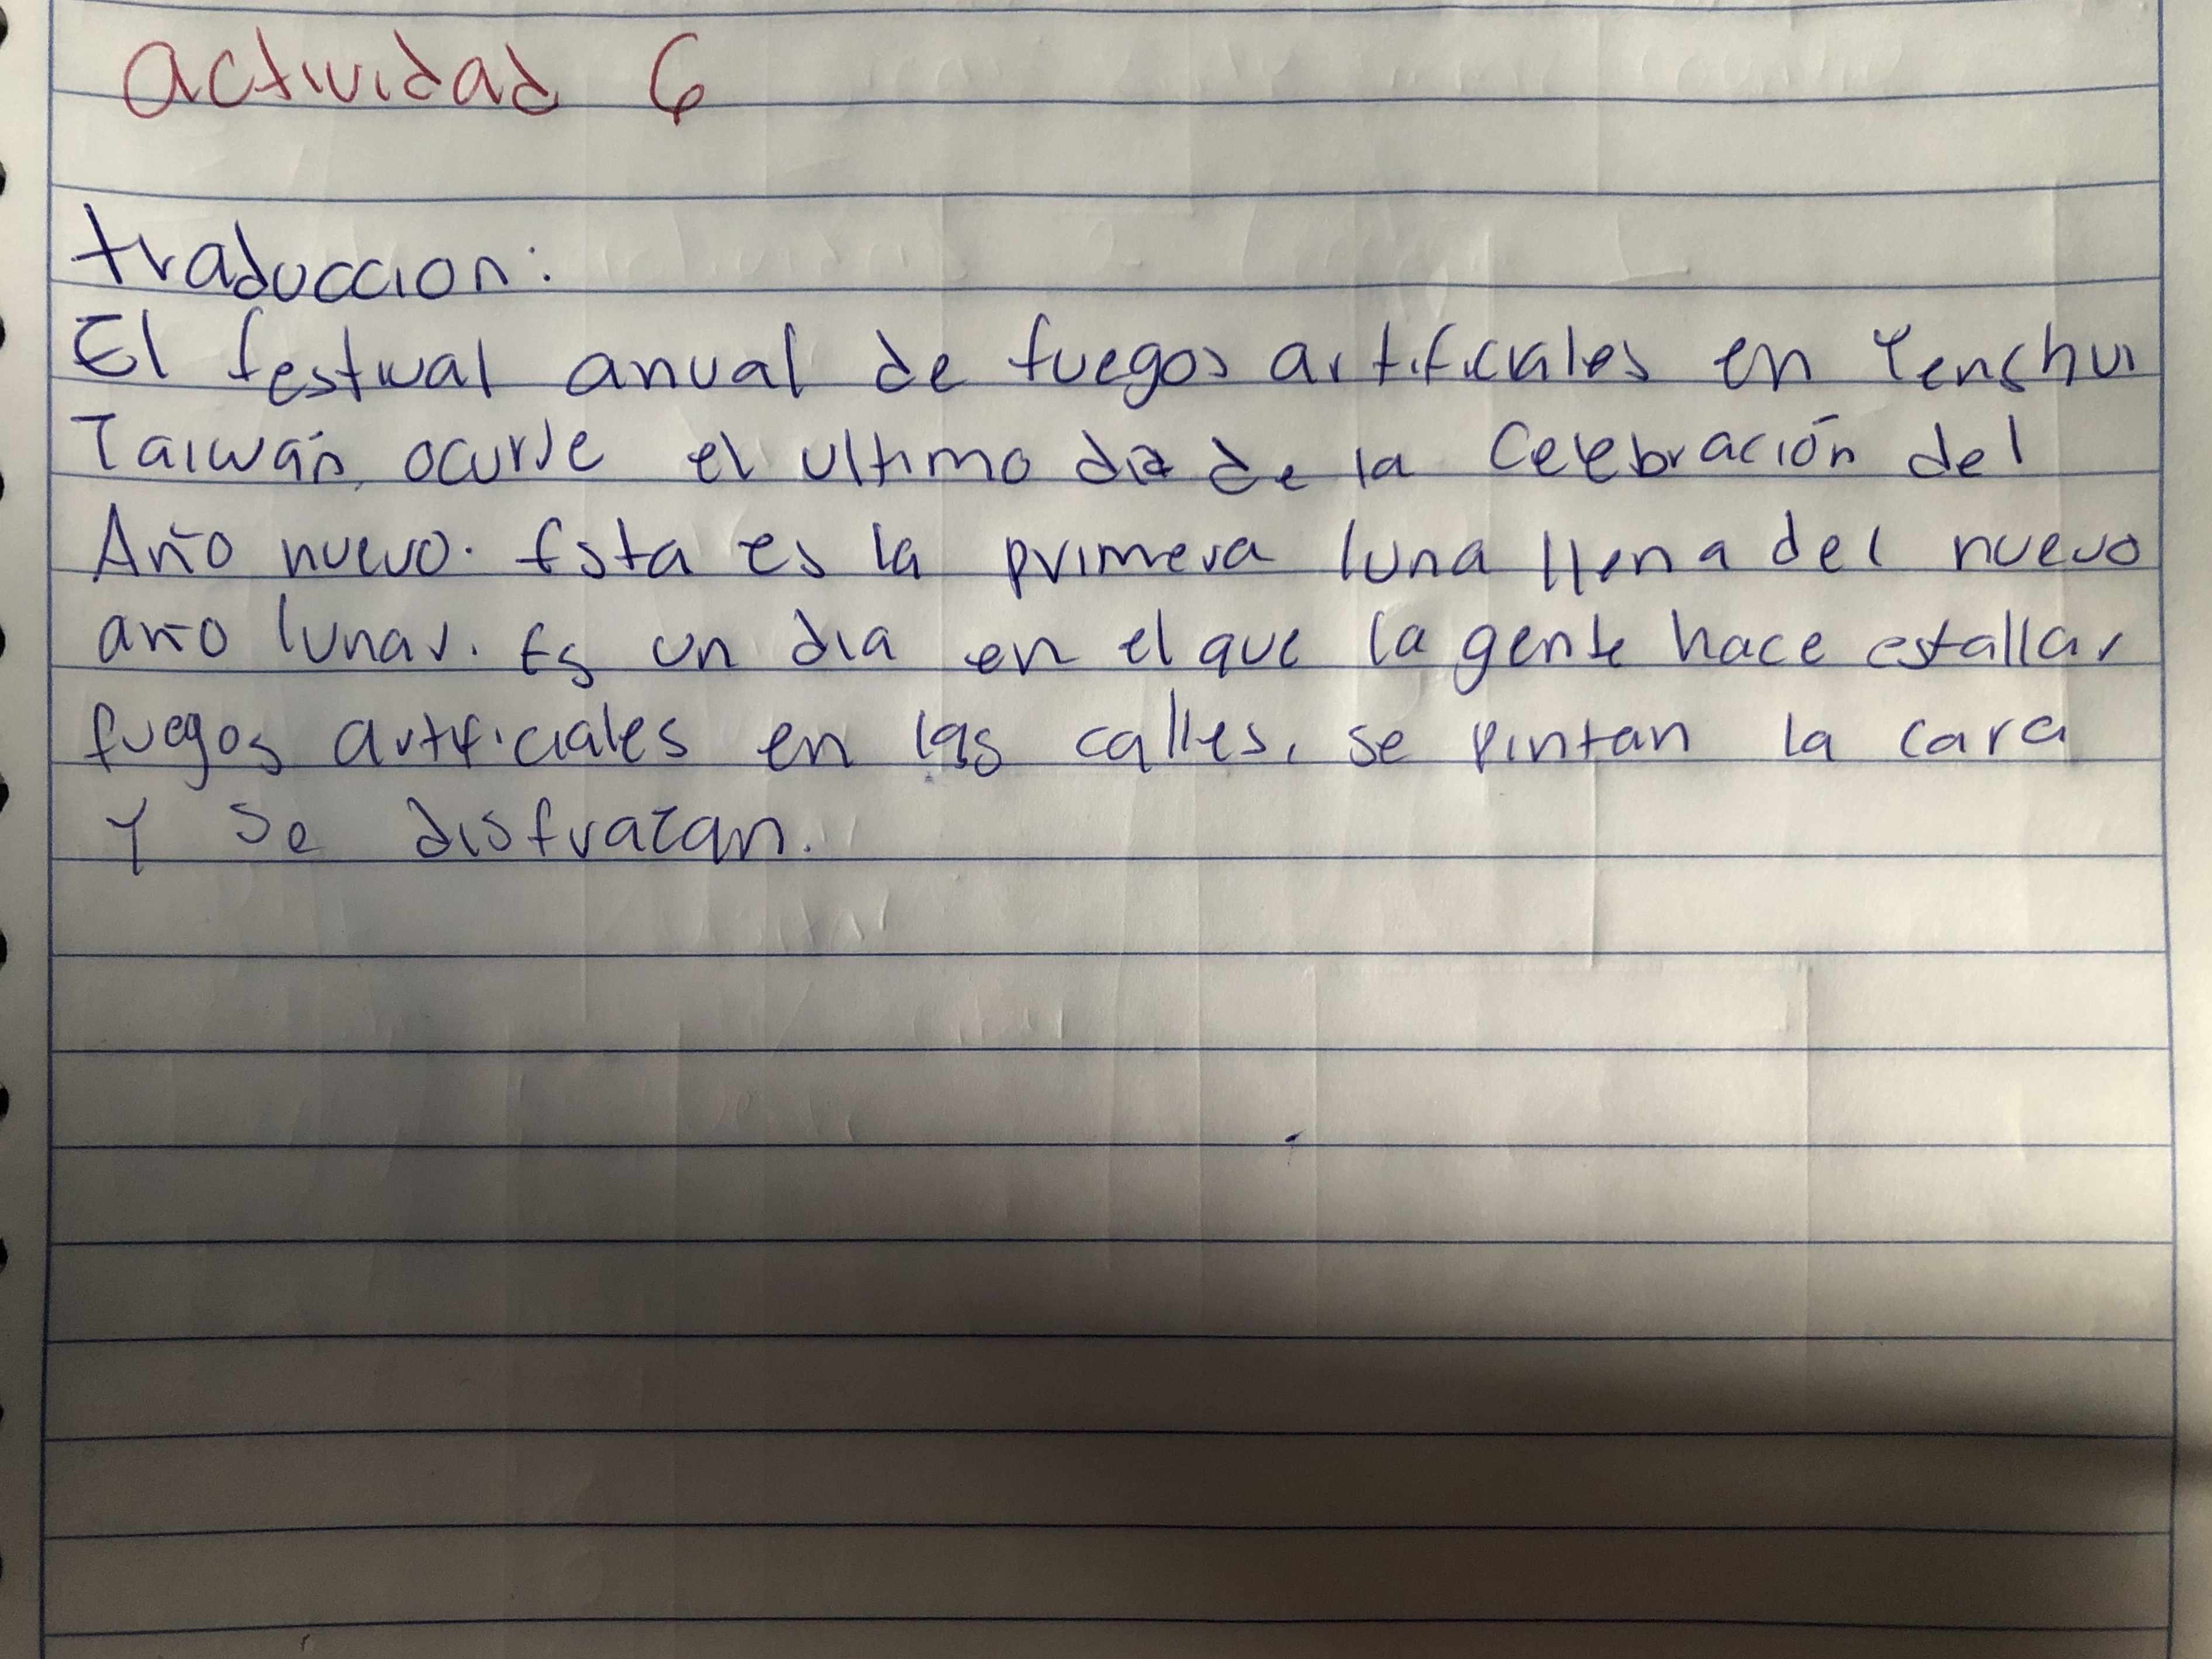 actividad 6
traduccion:
El festival anual de fuegos artificiales en Yenshui
Taiwán, ocurre el ultimo dia de la Celebración del
Año nuevo. Esta es la primera luna llena del nuevo
año lunar. Es un dia en el que la gente hace estallar
fuegos artificiales en las calles, se pintan la cara
y se disfrazan.